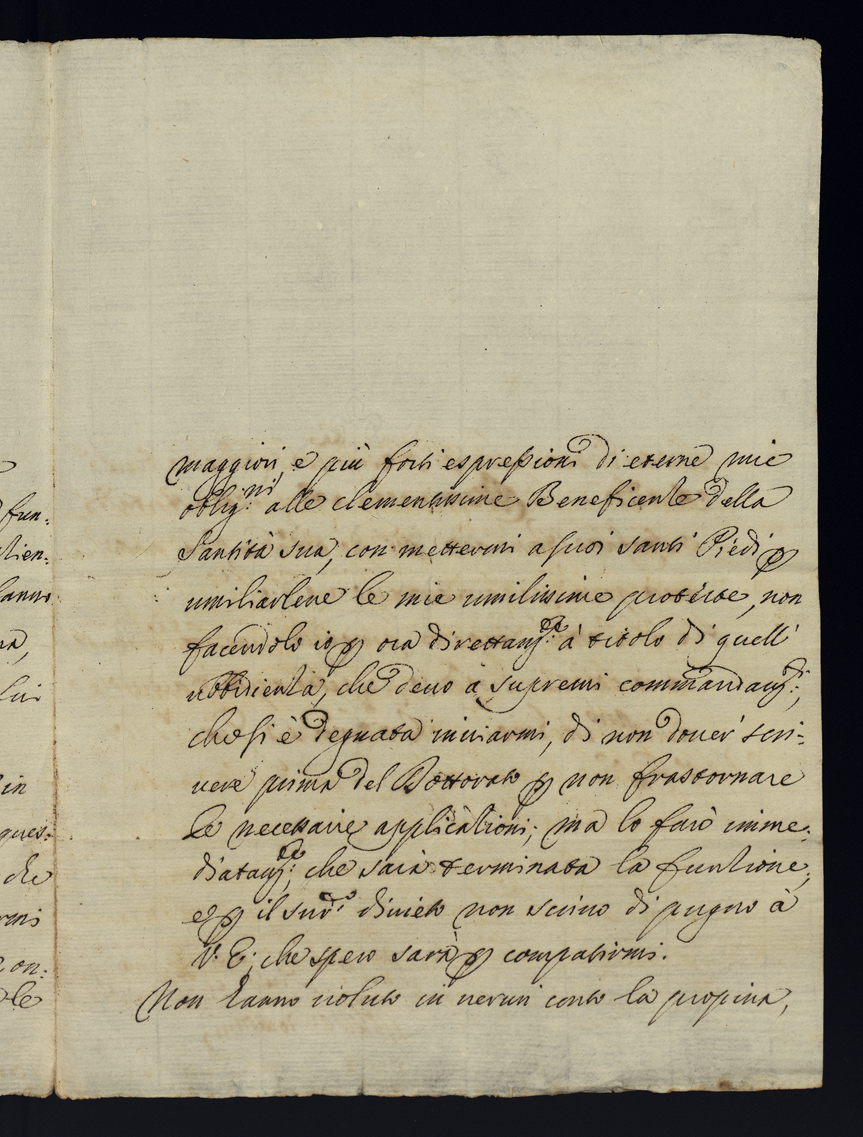 fun-
tien-
hanno
in
ques-
che
con-
le
maggiori, e più forti espressioni di eterne mie
oblig.ni alle clementissime Beneficenze della
Santità sua, con mettermi a suoi santi Piedi p
umiliarlene le mie umilissime proteste, non
facendolo io p ora direttam.te à titolo di quell'
ubbidienza, che devo a supremi commandam.ti,
che si è degnata inviarmi, di non dover' scri-
vere prima del Dottorato p non frastornare
le necessarie applicationi; ma lo farò imme-
diatam.te, che sarà terminata la funtione,
e p il sud.o divieto non scrivo di pugno à
V. E. che spero sarà p compatirmi.
Non hanno voluto in verun conto la propina,